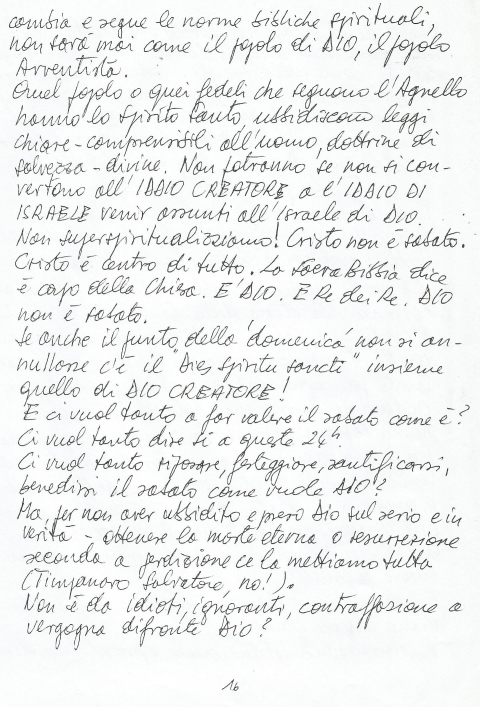 cambia e segue le norme bibliche spirituali,
non sarà mai come il popolo di DIO, il popolo
Avventista.
Quel popolo o quei fedeli che seguono l'Agnello
hanno lo Spirito Santo, ubbidiscono leggi
chiare-comprensibili all'uomo, dottrine di
salvezza-divine. Non potranno se non si con-
vertono all'IDDIO CREATORE a l'IDDIO DI
ISRAELE venir assunti all'Israele di DIO.
Non superspiritualizziamo! Cristo non è sabato.
Cristo è centro di tutto. La Sacra Bibbia dice
è capo della Chiesa. E' DIO. E Re dei Re. DIO
non è sabato.
Se anche il punto della 'domenica' non si an-
nullasse c'è il "Dies Spiritu Sancti" insieme
quello di DIO CREATORE!
E ci vuol tanto a far valere il sabato come è?
Ci vuol tanto dire si a queste 24h.
Ci vuol tanto riposare, festeggiare, santificarsi,
benedirsi il sabato come vuole DIO?
Ma, per non aver ubbidito e preso Dio sul serio e in
verità - ottenere la morte eterna o resurrezione
seconda a perdizione ce la mettiamo tutta
(Timpanaro Salvatore, no!).
Non è da idioti, ignoranti, contraffazione a
vergogna difronte Dio?
16